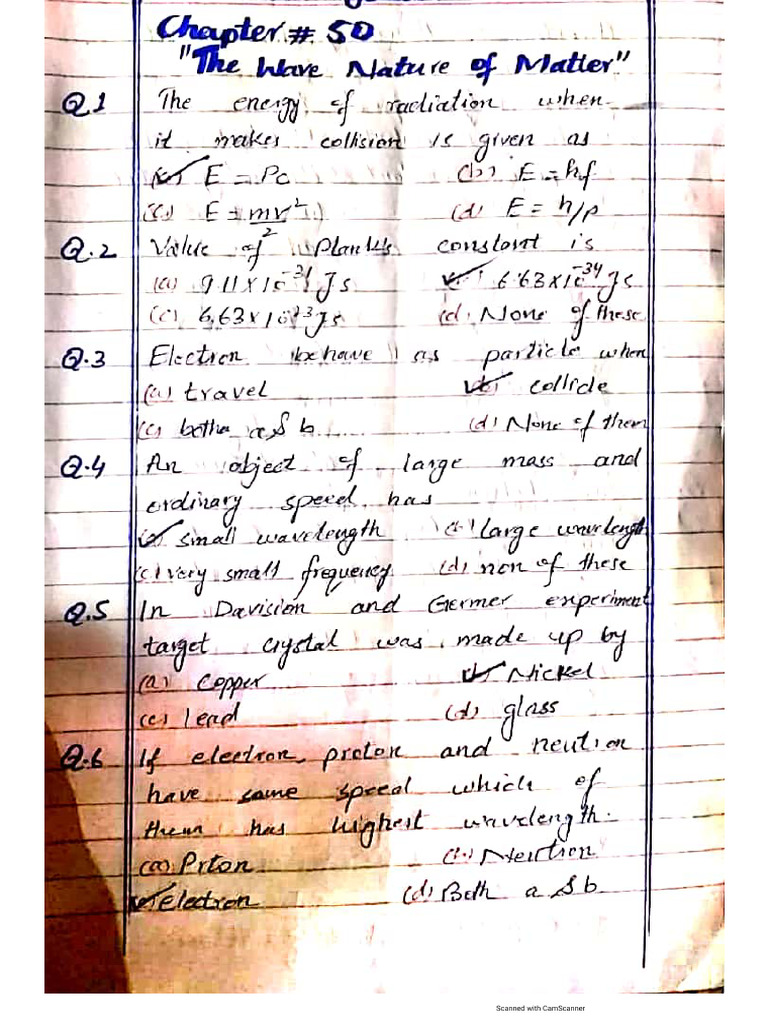 Chapter # 50
"The Wave Nature of Matter"
Q.1 The energy of radiation when
it makes collision is given as
✓ E = Pc (b) E = hf
(c) E = mv²/2 (d) E = h/p
Q.2 Value of Plank's constant is
(a) 9.11x10⁻³¹Js ✓ 6.63x10⁻³⁴Js
(c) 6.63x10⁻²³Js (d) None of these
Q.3 Electron behave as particle when
(a) travel ✓ collide
(c) botha & b (d) None of them
Q.4 An object of large mass and
ordinary speed has
✓ small wavelength (b) large wavelength
(c) very small frequency (d) non of these
Q.5 In Davision and Germer experiment
target crystal was made up by
(a) copper ✓ Nickel
(c) lead (d) glass
Q.6 If electron, proton and neutron
have same speed which of
them has highest wavelength.
(a) Prton (b) Neutron
✓ electron (d) Both a & b
Scanned with CamScanner